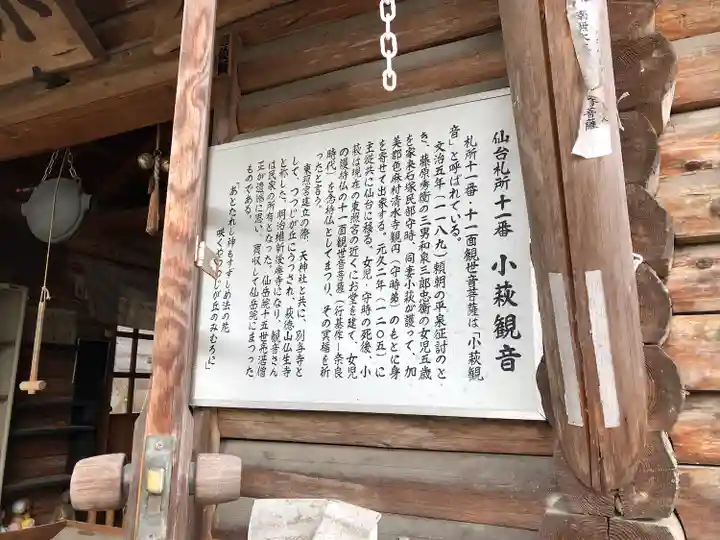 仙台札所十一番 小萩観音
札所十一番・十一面観世音菩薩は「小萩観
音」と呼ばれている。
文治五年（一一八九）頼朝の平泉征討のと
き、藤原秀衡の三男和泉三郎忠衡の女児五歳
を家来石塚民部守時、同妻小萩が護って、加
美郡色麻村清水寺観円（守時弟）のもとに身
を寄せて出家する。元久二年（一二〇五）に
主従共に仙台に移る。女児、守時の死後、小
萩は現在の東照宮の近くにお堂を建て、女児
の護持仏の十一面観世音菩薩（行基作－奈良
時代）を念持仏としてまつり、その冥福を祈
ったと言う。
東照宮建立の際、天神社と共に、別当寺と
して、つつじが丘にうつされ、萩徳山仏生寺
と称した。明治維新後廃寺になり、観音さん
は民家の所有となった。仙岳院十五世亮運僧
正が遺憾に思い、買収して仙岳院にまつった
ものである。
「あとたれし神もすずしめ法の花
咲くやつつじが丘のみむろに」
菩薩